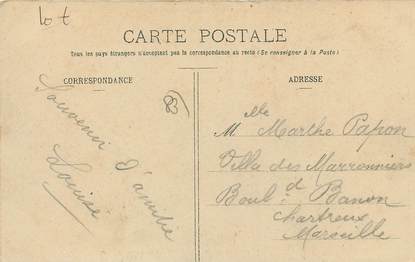 lot
CARTE POSTALE
Tous les pays étrangers n'acceptent pas la correspondance au recto (Se renseigner à la Poste)
CORRESPONDANCE
ADRESSE
Souvenir
d'amitié
Louise
Mlle Marthe Papon
Villa des Marronniers
Boul.d Banon
Chartreux
Marseille